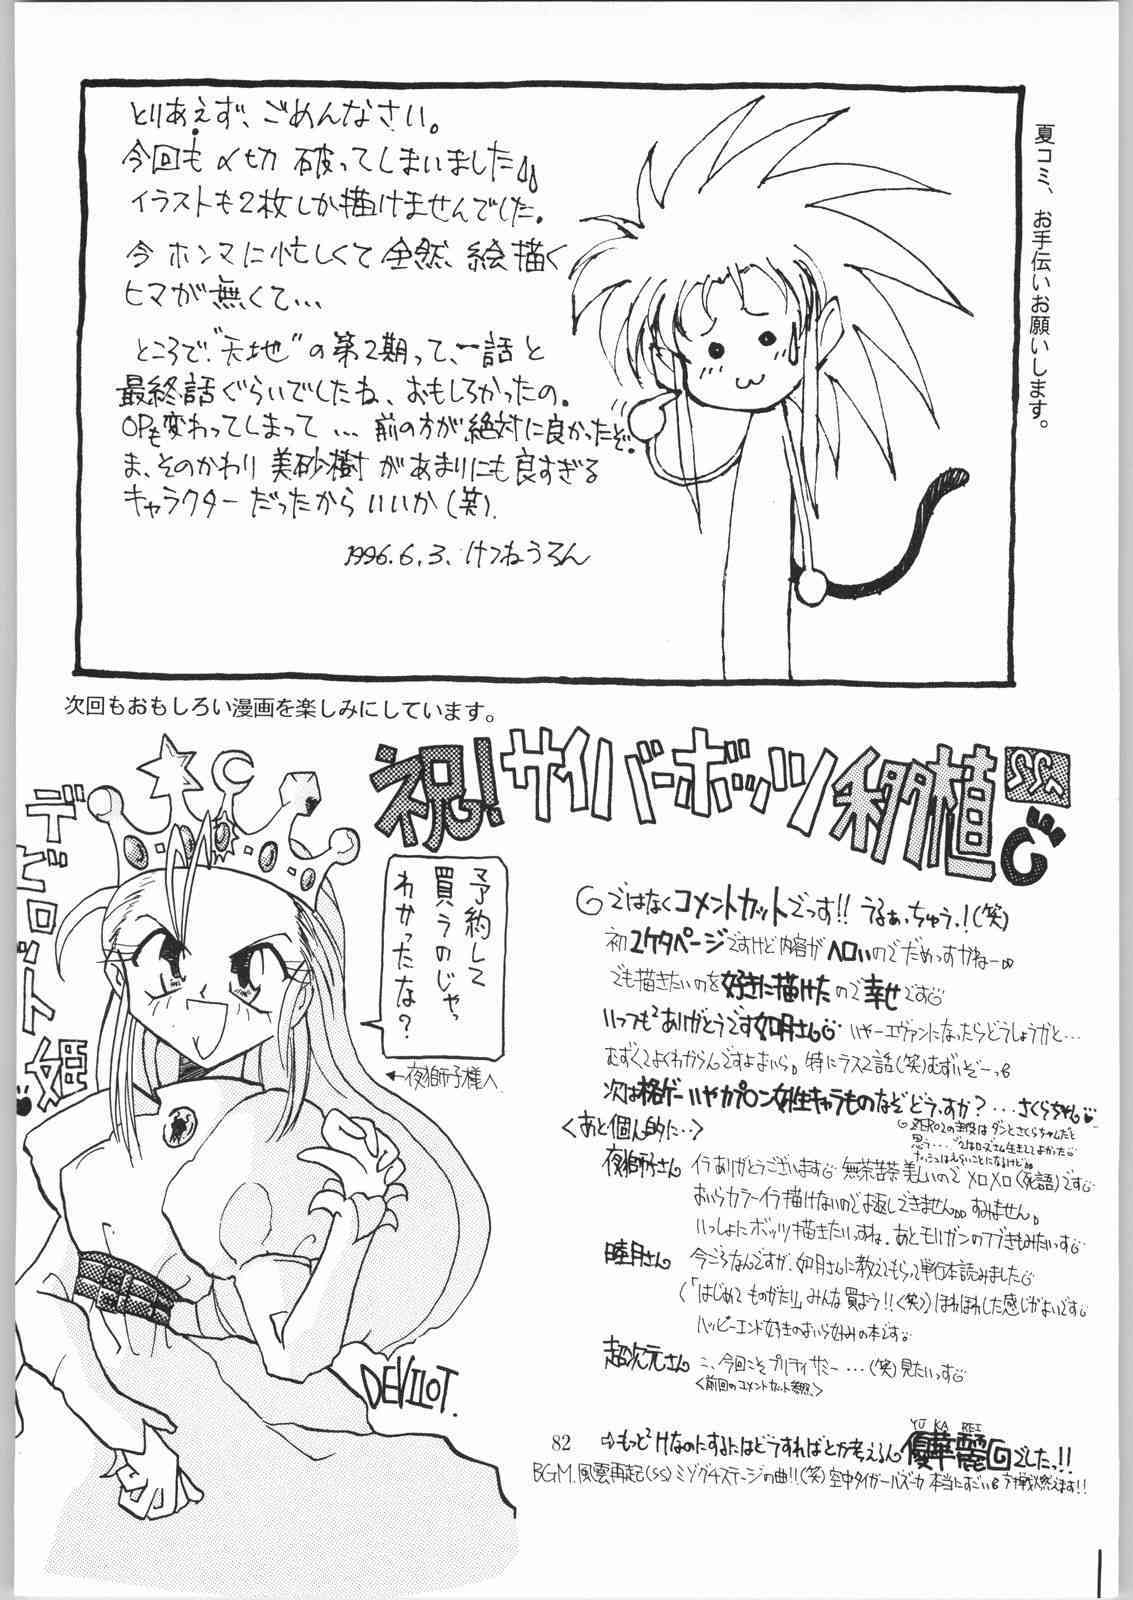 とりあえず、ごめんなさい。
今回も〆切 破ってしまいました
イラストも2枚しか描けませんでした。
今 ホンマに忙しくて 全然、絵描く
ヒマが無くて…
ところで、"天地"の第2期って、一話と
最終話ぐらいでしたね、おもしろかったの。
OPも変わってしまって … 前の方が絶対に良かったぞ。
ま、そのかわり 美砂樹があまりにも良すぎる
キャラクターだったから いいか(笑).
1996.6.3、けつねうろん
夏コミ、お手伝いお願いします。
次回もおもしろい漫画を楽しみにしています。
祝!サイバーボッツ移植 SS
デビロット姫
予約して
買うのじゃっ
わかったな?
←夜獅子様へ
ではなくコメントカットでっす!! うるぁ、ちゅう、!(笑)
初 2ケタページですけど内容がヘロいのでだめっすかねー
でも描きたいのを好きに描けたので幸せです
いっつもありがとうです如月さん ハヤーエヴァンになったらどうしょうかと…
むずくてよくわからんですよまいら。特にラス2話(笑)むずいぞーっ
次は格ゲーハヤカプコン女性キャラものなぞどうすか?…さくらちゃん
ZERO2の主役はダンとさくらちゃんだと
思う…
<あと個人的に…>
夜獅子さん イラありがとうございます 無茶苦茶美しいので メロメロ(死語)です
おいらカラーイラ描けないのでお返しできません すみません。
いっしょにボッツ描きたいっすね。あとモリガンの
睦月さん 今ごろなんですが、如月さんに教えてもらって単行本読みました
(「はじめてものがたり」みんな買よう!!(笑))ほわほわした感じがよいです
ハッピーエンド好きのおいら好みの本です
超次元さん こ、今回こそプリティサミー…(笑)見たいっす
<前回のコメントカット参照>
DEVILOT.
82
⇨もっとHなのにするにはどうすればとか考えるん
YU KA REI
優華麗でしたっ!!
BGM.風雲再起(SS)ミヅグチステージの曲!!(笑)空中タイガールズーカ 本当にすごい 対戦燃えます!!